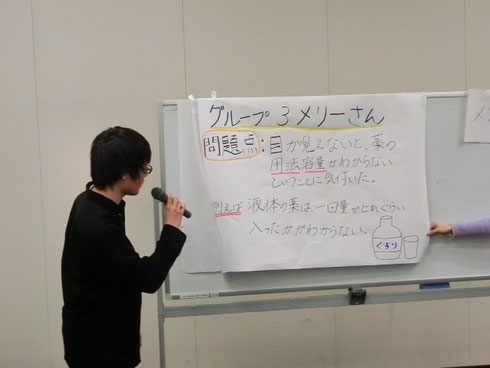 グループ3 メリーさん
問題点:目が見えないと、薬の
用法容量がわからない
ということに気付いた。
例えば 液体の薬は、一回量がどれぐらい
入ったかがわからない。
くすり